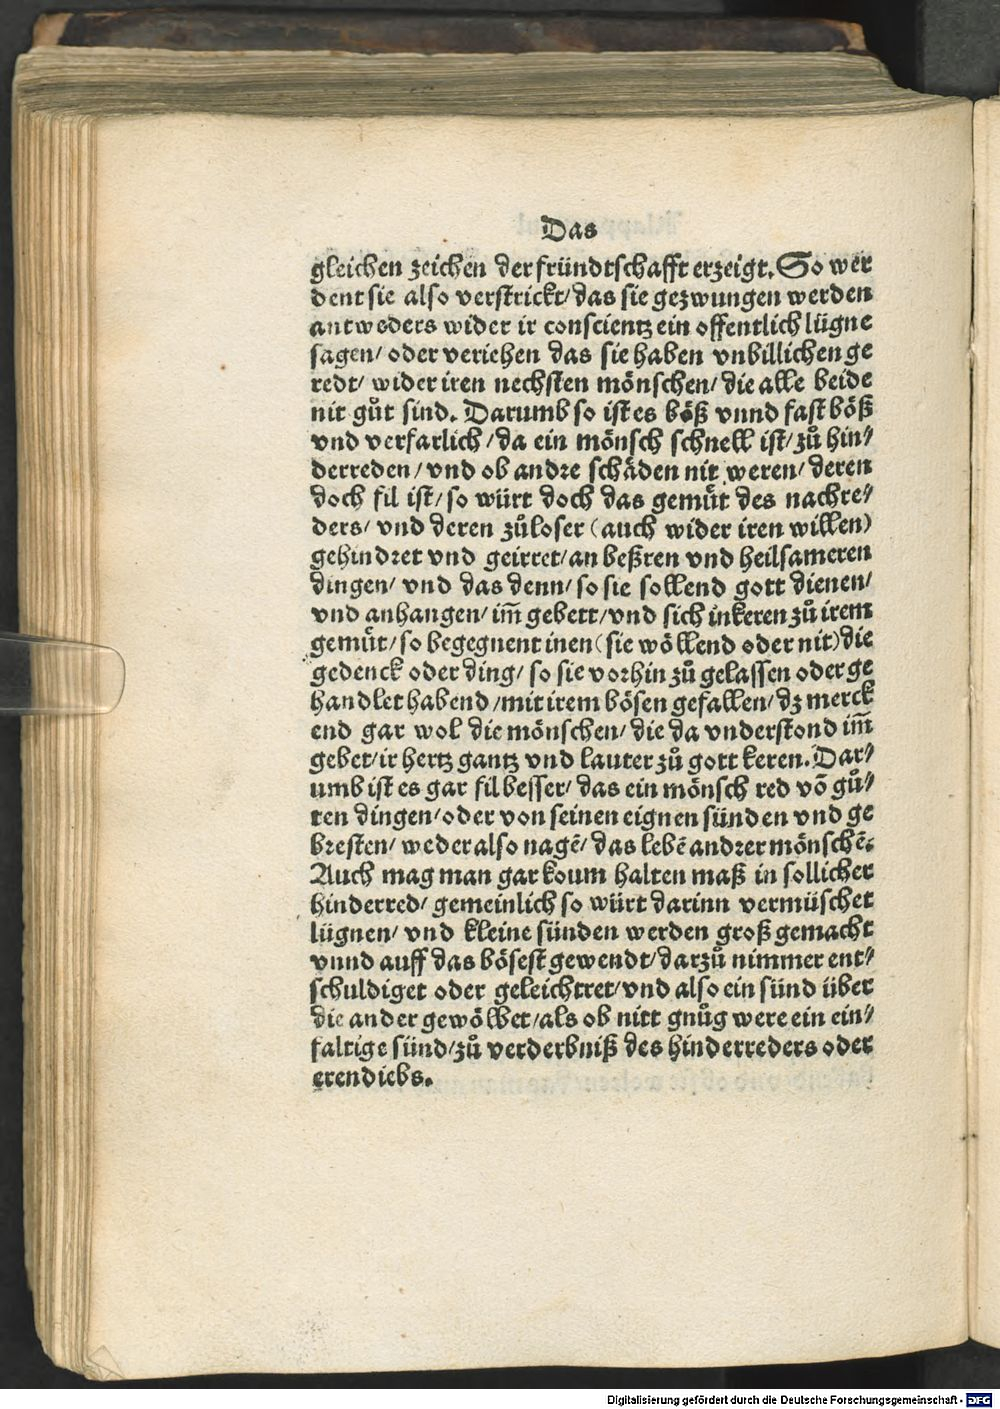 Das
gleichen zeichen der fründtschafft erzeigt. So wer
dent sie also verstrickt/ das sie gezwungen werden
antweders wider ir conscientz ein offentlich lügne
sagen/ oder veriehen das sie haben vnbillichen ge
redt/ wider iren nechsten mönschen/ die alle beide
nit gůt sind. Darumb so ist es böß vnnd fast böß
vnd verfarlich/ da ein mönsch schnell ist/ zů hin⸗
derreden/ vnd ob andre schäden nit weren/ deren
doch fil ist/ so würt doch das gemüt des nachre⸗
ders/ vnd deren zůloser (auch wider iren willen)
gehindret vnd geirret/ an beßren vnd heilsameren
dingen/ vnd das denn/ so sie sollend gott dienen/
vnd anhangen/ im̄ gebett/ vnd sich inkeren zů irem
gemüt/ so begegnent inen (sie wöllend oder nit) die
gedenck oder ding/ so sie vorhin zů gelassen oder ge
handlet habend/ mit irem bösen gefallen/ dz merck
end gar wol die mönschen/ die da vnderstond im̄
gebet/ ir hertz gantz vnd lauter zů gott keren. Dar⸗
umb ist es gar fil besser/ das ein mönsch red võ gů⸗
ten dingen/ oder von seinen eignen sünden vnd ge
bresten/ weder also nagẽ/ das lebẽ andrer mönschẽ.
Auch mag man gar koum halten maß in sollicher
hinderred/ gemeinlich so würt darinn vermüschet
lügnen/ vnd kleine sünden werden groß gemacht
vnnd auff das bösest gewendt/ darzů nimmer ent⸗
schuldiget oder geleichtret/ vnd also ein sünd über
die ander gewölbet/ als ob nitt gnůg were ein ein⸗
faltige sünd/ zů verderbniß des hinderreders oder
erendiebs.
Digitalisierung gefördert durch die Deutsche Forschungsgemeinschaft - DFG